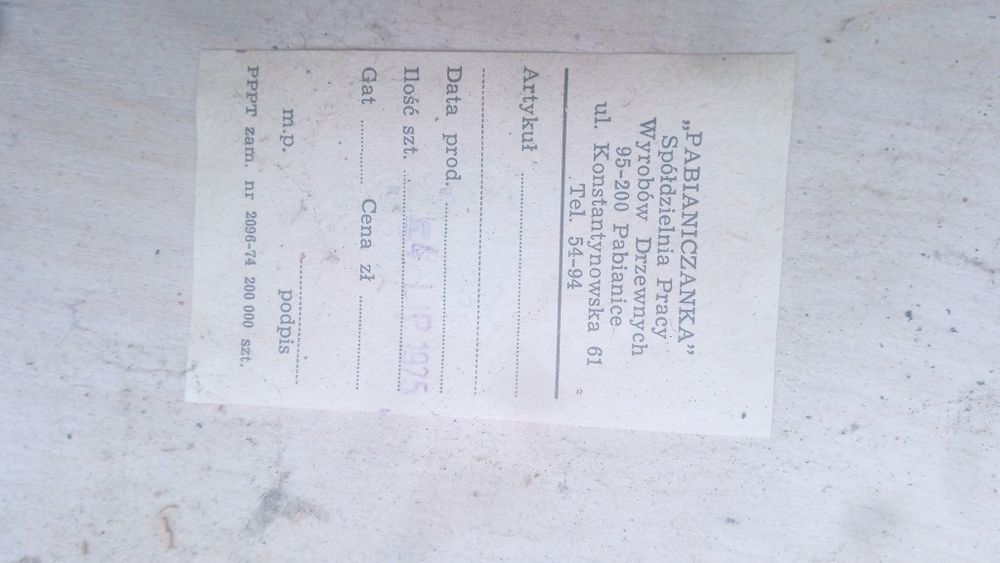 „PABIANICZANKA”
Spółdzielnia Pracy
Wyrobów Drzewnych
95-200 Pabianice
ul. Konstantynowska 61
Tel. 54-94
Artykuł
Data prod.
LIP 1975
Ilość szt.
Gat Cena zł
m.p. podpis
PPPT zam. nr 2096-74 200 000 szt.